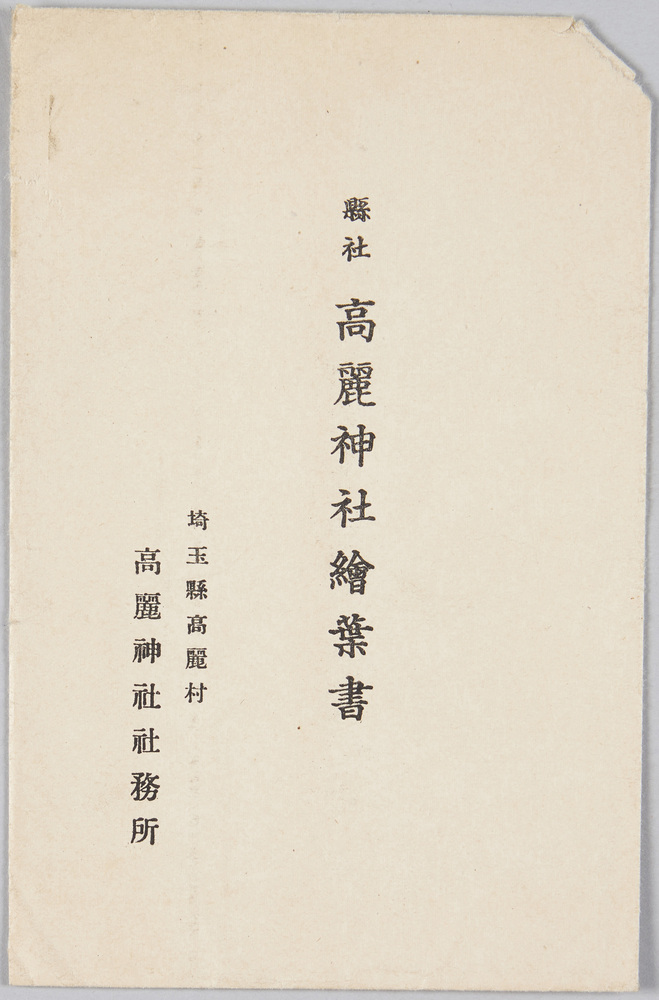 縣社 高麗神社繪葉書
埼玉縣高麗村
高麗神社社務所